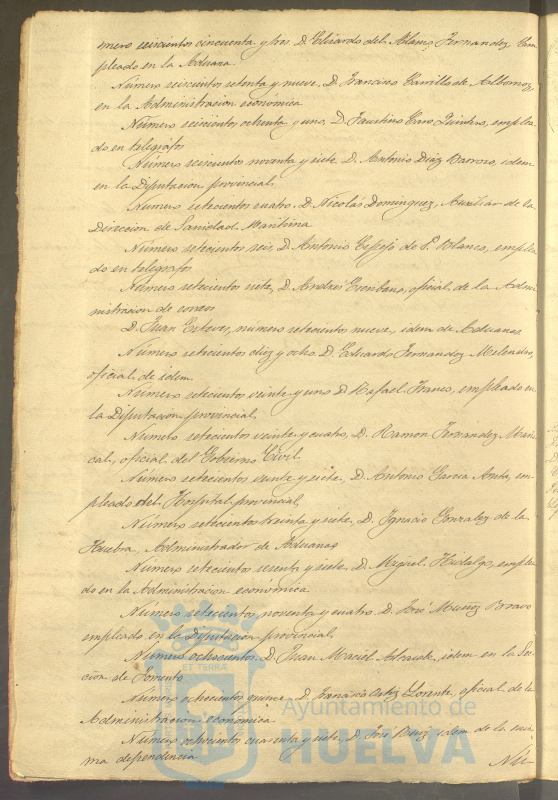 mero seiscientos cincuenta y tres. D. Eduardo del Alamo Fernandez Em-
pleado en la Aduana
Número seiscientos setenta y nueve, D. Francisco Carrillo de Albornoz,
en la Administracion económica
Número seiscientos ochenta y uno, D. Faustino Caro Quintero, emplea-
do en telégrafos
Número seiscientos noventa y siete D. Antonio Diaz Barroso, idem
en la Diputacion provincial,
Numero setecientos cuatro D. Nicolás Dominguez, Auxiliar de la
Direccion de Sanidad Maritima
Número setecientos seis, D. Antonio de Sn. Blanco, emplea
do en telégrafos
Número setecientos siete, D. Andres Escribano, oficial de la Admi-
nistracion de correos
D. Juan Esteves, número setecientos nueve, idem de Aduanas
Número setecientos diez y ocho D. Eduardo Fernandez Melendez,
oficial de idem
Número setecientos veinte y uno D. Rafael Franco, empleado en
la Diputacion provincial,
Numero setecientos veinte y cuatro, D. Ramon Fernandez Maris-
cal, oficial del Gobierno Civil
Número setecientos veinte y siete, D. Antonio Garcia em-
pleado del Hospital provincial,
Número setecientos treinta y siete, D. Ignacio Gonzalez de la
Huebra, Administrador de Aduanas
Número setecientos sesenta y siete, D. Miguel Hidalgo, emplea
do en la Administracion económica
Número setecientos noventa y cuatro D. José Muñoz Bravo
empleado en la Diputacion provincial,
Número ochocientos. D. Juan Maciel idem en la Sec-
cion de Fomento
Número ochocientos quince, D. Francisco Llorente, oficial de la
Administracion económica
Número ochocientos cuarenta y siete D. José Ruiz idem de la mis-
ma dependencia
Nú-
ET TERRÆ
Ayuntamiento de
HUELVA